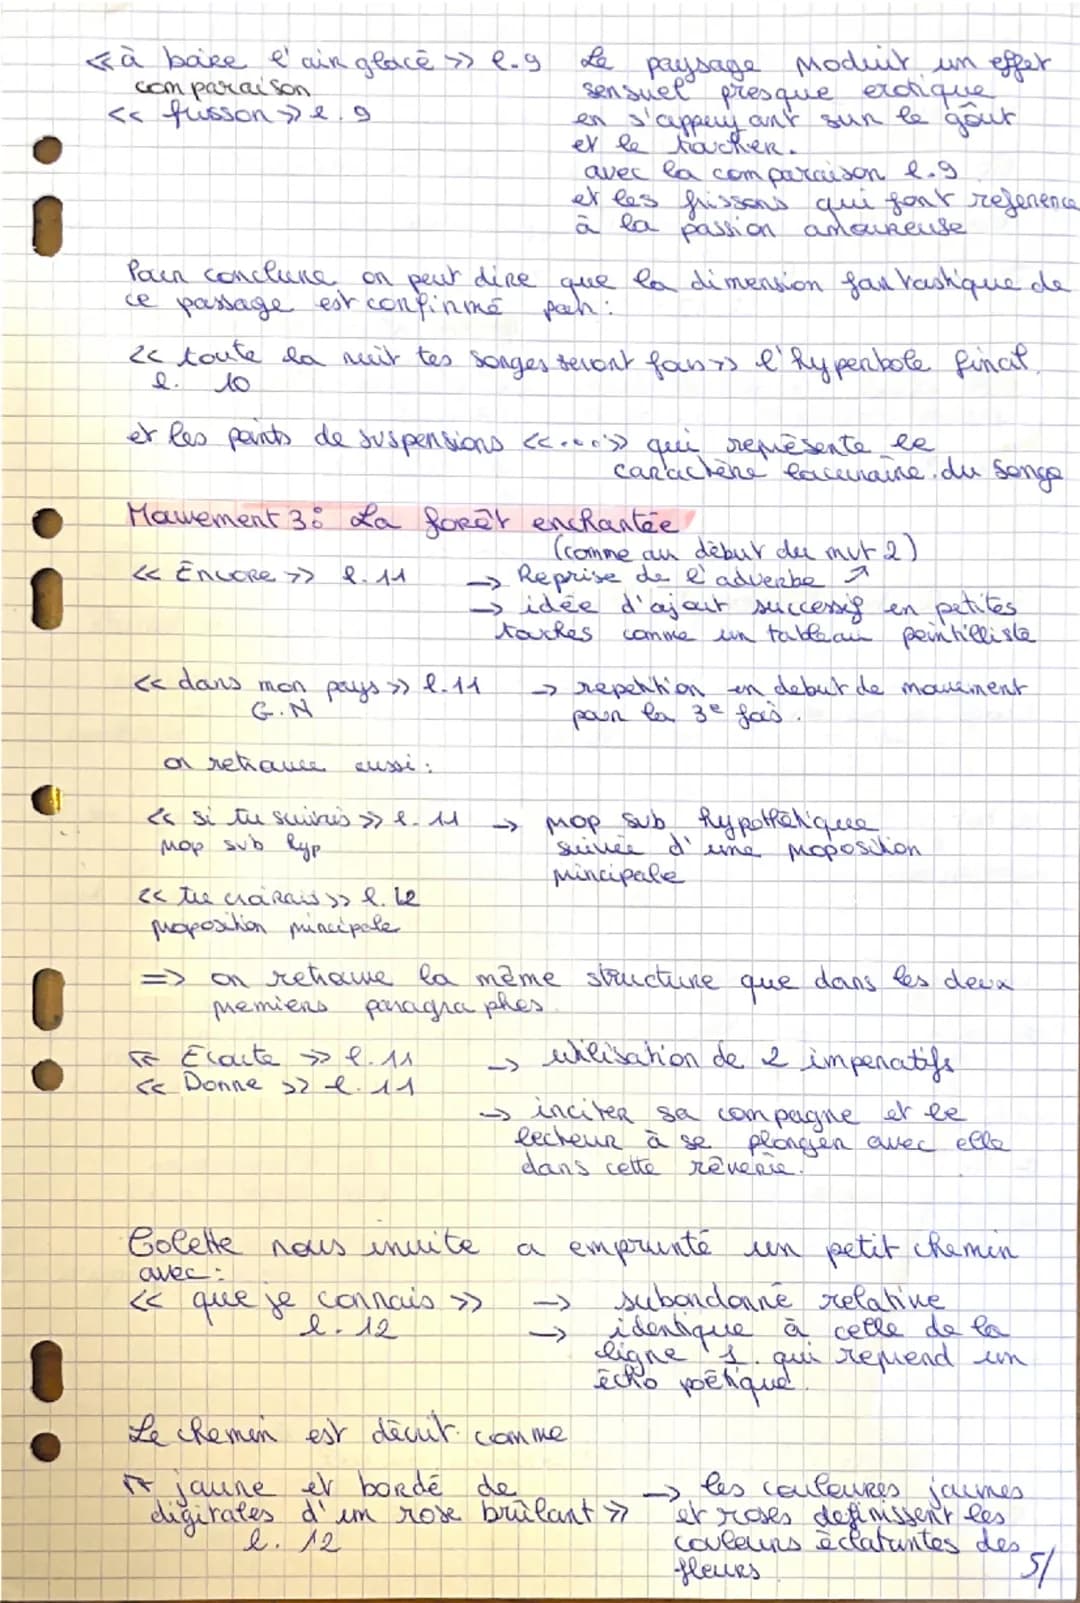 << à boire l'air glacé >> l.9
comparaison
<< frisson >> l.9
Le paysage produit un effet
sensuel presque erotique
en s'appuyant sur le goût
et le toucher.
avec la comparaison l.9
et les frissons qui font reference
à la passion amoureuse
Pour conclure on peut dire que la dimension fantastique de
ce passage est confirmé par :
<< toute la nuit tes songes seront fous >> l'hyperbole final.
l. 10
et les points de suspensions <<...>> qui représente le
caractère lacunaire du songe
Mouvement 3 : La forêt enchantée
(comme au début du mvt 2)
<< Encore >> l.11 → Reprise de l'adverbe ↗
→ idée d'ajout successif en petites
touches comme un tableau pointilliste
<< dans mon pays >> l.11 → repetition en debut de mouvement
G.N pour la 3e fois.
on retrouve aussi :
<< si tu suivais >> l.11 → prop sub hypothétique
prop sub hyp suivie d'une proposition
principale
<< tu croirais >> l.12
proposition principale
=> on retrouve la même structure que dans les deux
premiers paragraphes.
<< Ecoute >> l.11 → utilisation de 2 imperatifs
<< Donne >> l.11
→ inciter sa compagne et le
lecteur à se plonger avec elle
dans cette rêverie.
Colette nous invite a emprunté un petit chemin
avec :
<< que je connais >> → subordonné relative
l.12 → identique à celle de la
ligne 1. qui reprend un
écho poétique.
Le chemin est décrit comme
<< jaune et bordé de
digitales d'un rose brûlant >>
l. 12
→ les couleures jaunes
et roses definissent les
couleurs éclatantes des
fleurs
5/